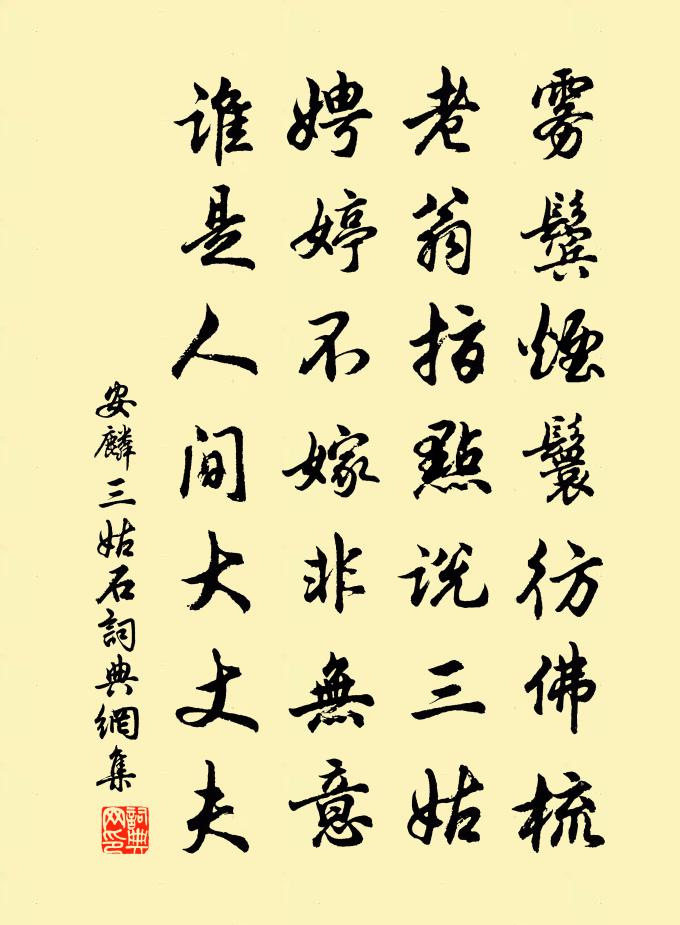 雾鬓煙鬟彷佛梳
老翁指點说三姑
娉婷不嫁非無意
谁是人间大丈夫
安麟三姑石詞典網集
詞典网印